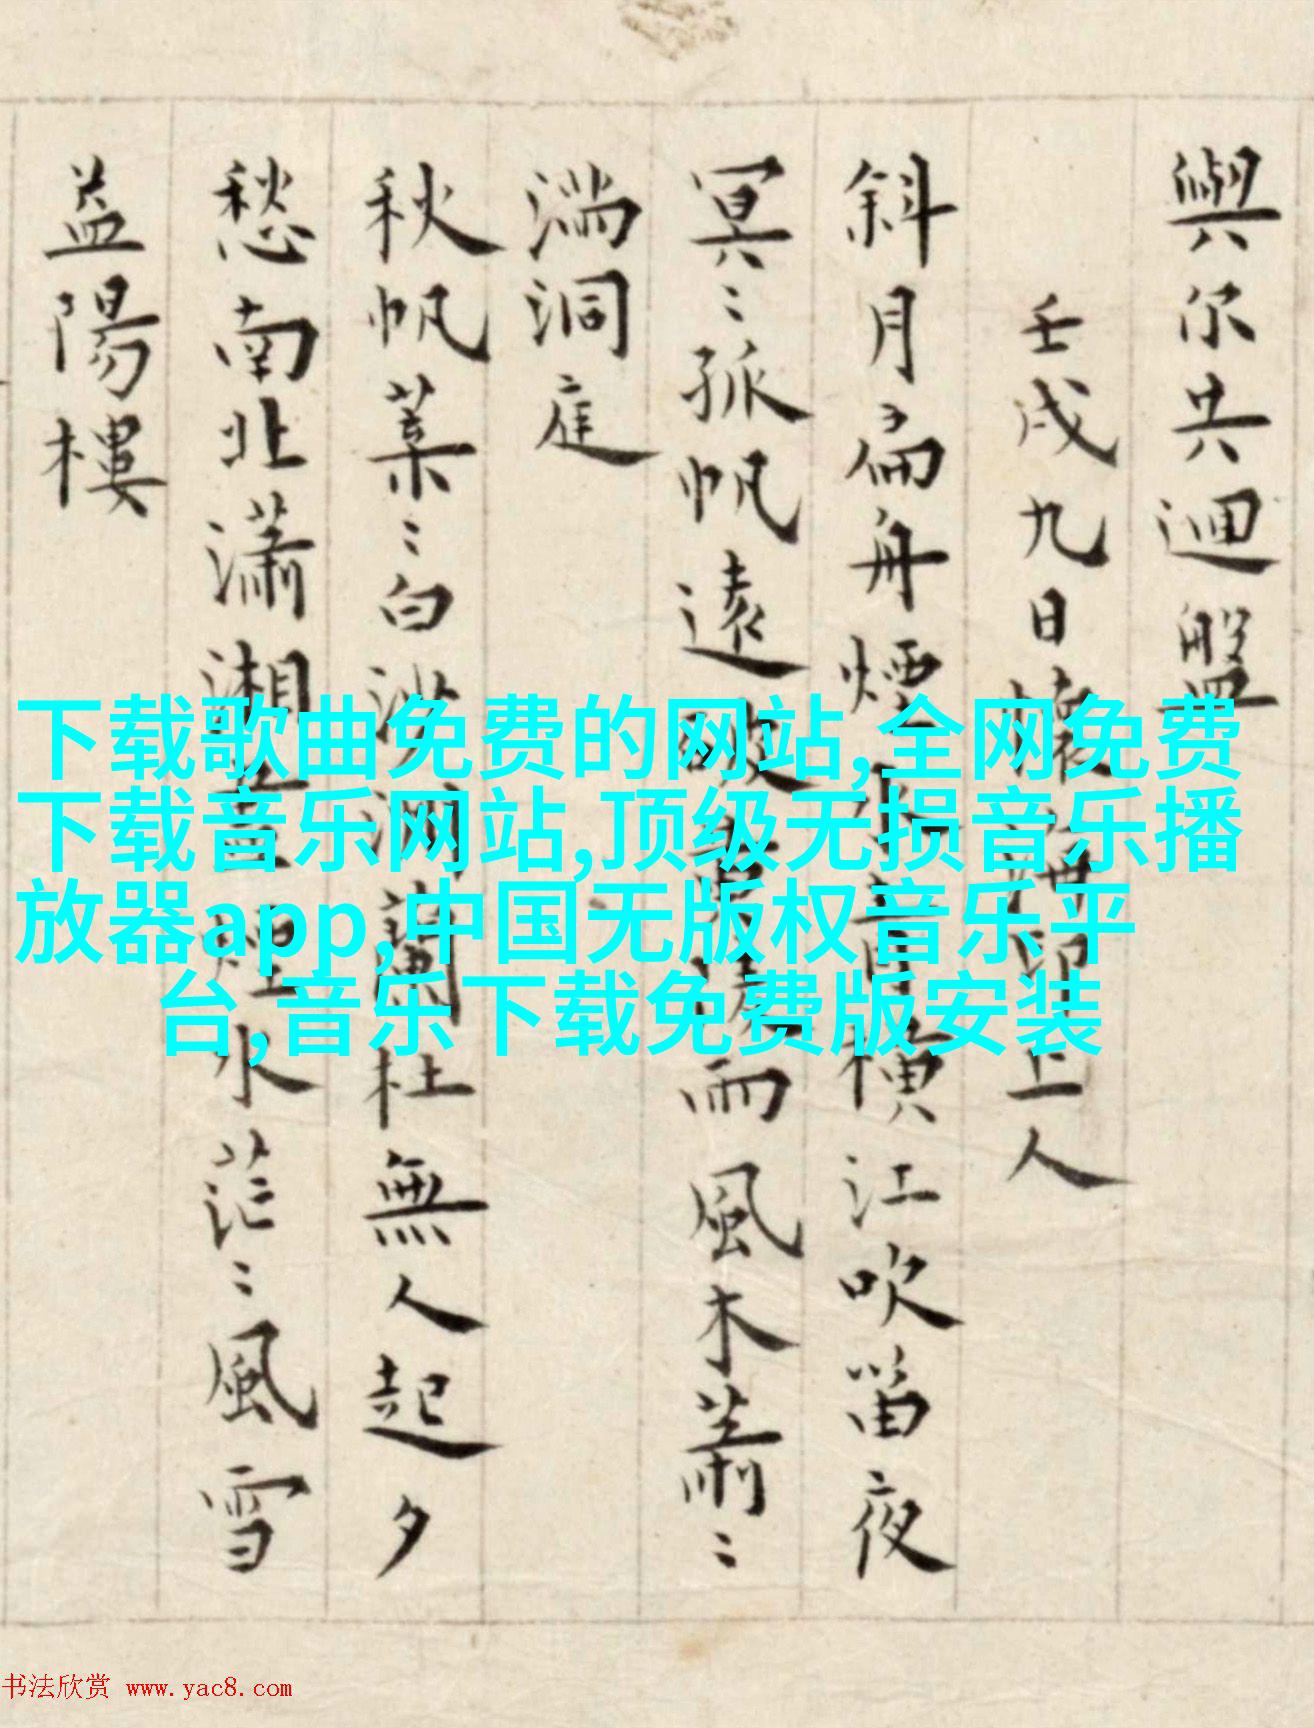 與尔共迴盤
壬戌九日懷海印上人
斜月扁舟煙月横江吹笛夜
冥〻孤帆遠破而風木蕭〻
湍洞庭
秋帆葉〻白沙洲蘭杜無人起夕
愁南北瀟湘煙水茫〻風雪
益陽樓
下载歌曲免费的网站,全网免费
下载音乐网站,顶级无损音乐播
放器app,中国无版权音乐平
台,音乐下载免费版安装
书法欣赏 www.yac8.com